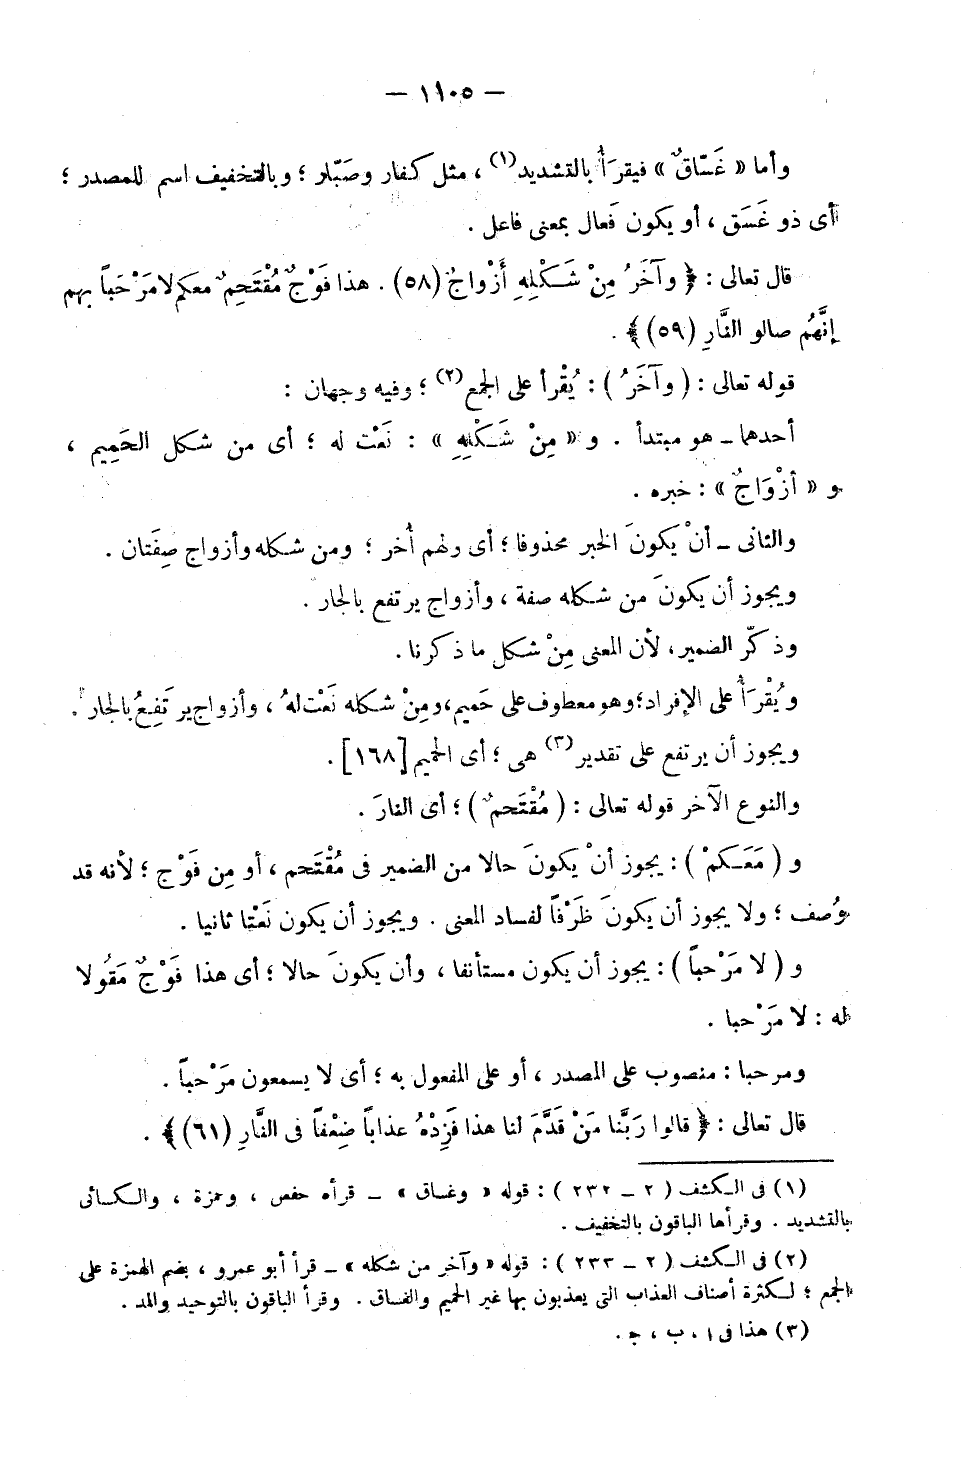 — ١١٠٥ —
وأما « غَسّاقٌ » فيقرَأُ بالتشديد(١) ، مثل كفار وصَبّار ؛ وبالتخفيف اسم للمصدر ؛
أى ذو غَسَق ، أو يكون فَعال بمعنى فاعل .
قال تعالى : ﴿ وآخَرُ مِنْ شَكْلِهِ أَزْواجٌ (٥٨) . هذا فَوْجٌ مُقْتَحِمٌ معكم لا مَرْحَباً بهم
إنَّهُم صالو النَّارِ (٥٩) ﴾ .
قوله تعالى : ( وآخَرُ ) : يُقْرأ على الجمع(٢) ؛ وفيه وجهان :
أحدهما ـ هو مبتدأ . و « مِنْ شَكْلِهِ » : نَعْت له ؛ أى من شكل الحَمِيم ،
و « أزْوَاجٌ » : خبره .
والثانى ـ أنْ يكونَ الخبر محذوفا ؛ أى ولهم أُخر ؛ ومن شكله وأزواج صِفَتان .
ويجوز أن يكونَ من شكله صفة ، وأزواج يرتفع بالجار .
وذكّر الضمير، لأن المعنى مِنْ شكل ما ذكرنا .
ويُقْرَأُ على الإفراد؛ وهو معطوف على حَميم، ومِنْ شكله نَعْت لهُ ، وأزواج يرتَفِعُ بالجار .
ويجوز أن يرتفع على تقدير(٣) هى ؛ أى الحميم [١٦٨] .
والنوع الآخر قوله تعالى : ( مُقْتَحمٌ ) ؛ أى النارَ .
و ( مَعَكمْ ) : يجوز أنْ يكونَ حالا من الضمير فى مُقْتَحم ، أو مِن فَوْج ؛ لأنه قد
وُصف ؛ ولا يجوز أن يكونَ ظَرْفاً لفساد المعنى . ويجوز أن يكون نَعْتا ثانيا .
و ( لا مَرْحباً ) : يجوز أن يكون مستأنفا ، وأن يكونَ حالا ؛ أى هذا فَوْجٌ مَقُولا
له : لا مَرْحبا .
ومرحبا : منصوب على المصدر ، أو على المفعول به ؛ أى لا يسمعون مَرْحباً .
قال تعالى : ﴿ قالوا رَبَّنا مَنْ قَدَّمَ لنا هذا فَزِدْهُ عذاباً ضِعْفاً فى النَّارِ (٦١) ﴾ .
(١) فى الكشف ( ٢ ـ ٢٣٢ ) : قوله « وغساق » ـ قرأه حفص ، وحمزة ، والكسائى
بالتشديد . وقرأها الباقون بالتخفيف .
(٢) فى الكشف ( ٢ ـ ٢٣٣ ) : قوله « وآخر من شكله » ـ قرأ أبو عمرو ، بضم الهمزة على
الجمع ؛ لكثرة أصناف العذاب التى يعذبون بها غير الحميم والغساق . وقرأ الباقون بالتوحيد والمد .
(٣) هذا فى ا ، ب ، ج .